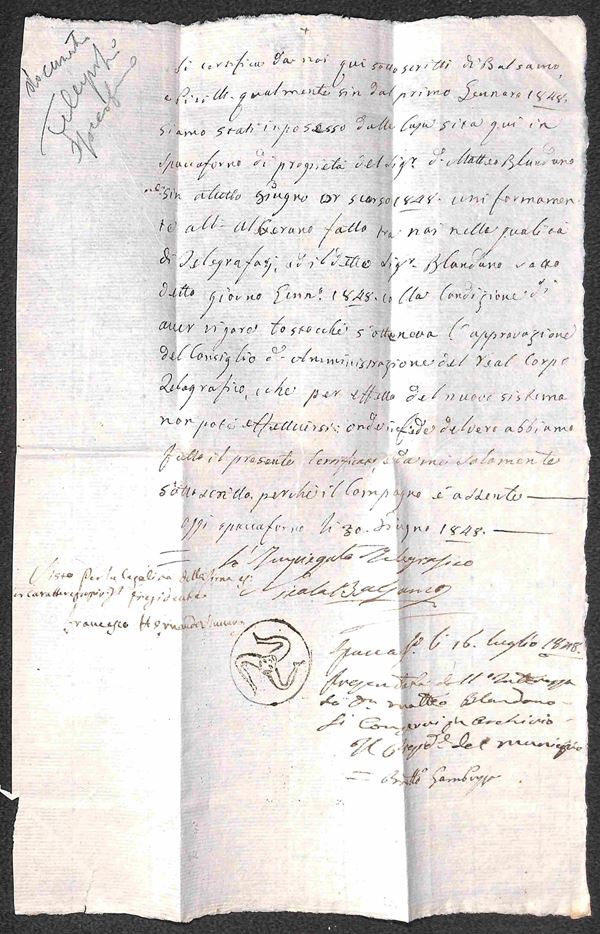 documenti
Telegrafo
Spaccaforno
Si certifica da noi qui sottoscritti di Balsamo,
qualmente sin dal primo Gennaro 1848.
siamo stati in possesso della Casa sita qui in
Spaccaforno di proprietà del Sigr. Dn. Matteo Blandano
sin a tutto Giugno or scorso 1848. uniformamen-
te all' Alberano fatto tra noi nelle qualità
di Telegrafazj, ed il detto Sigr. Blandano
detto giorno Genn.o 1848. colla condizione di
aver vigore tostocchè s'otteneva l'approvazione
del Consiglio d'Amministrazione del Real Corpo
Telegrafico, che per effetto del nuovo sistema
non potè effettuirsi: onde in fede del vero abbiamo
fatto il presente Certificato, e da me solamente
sottoscritto, perchè il Compagno è assente
Oggi Spaccaforno li 30. Giugno 1848.
L'Impiegato Telegrafico
Nicola Balsamo
Visto per la legalità della firma
Presidente
Francesco
Spaccafo. li 16. luglio 1848.
Presentata
Dn. Matteo Blandano
Si Conservi in archivio
Il del municipio